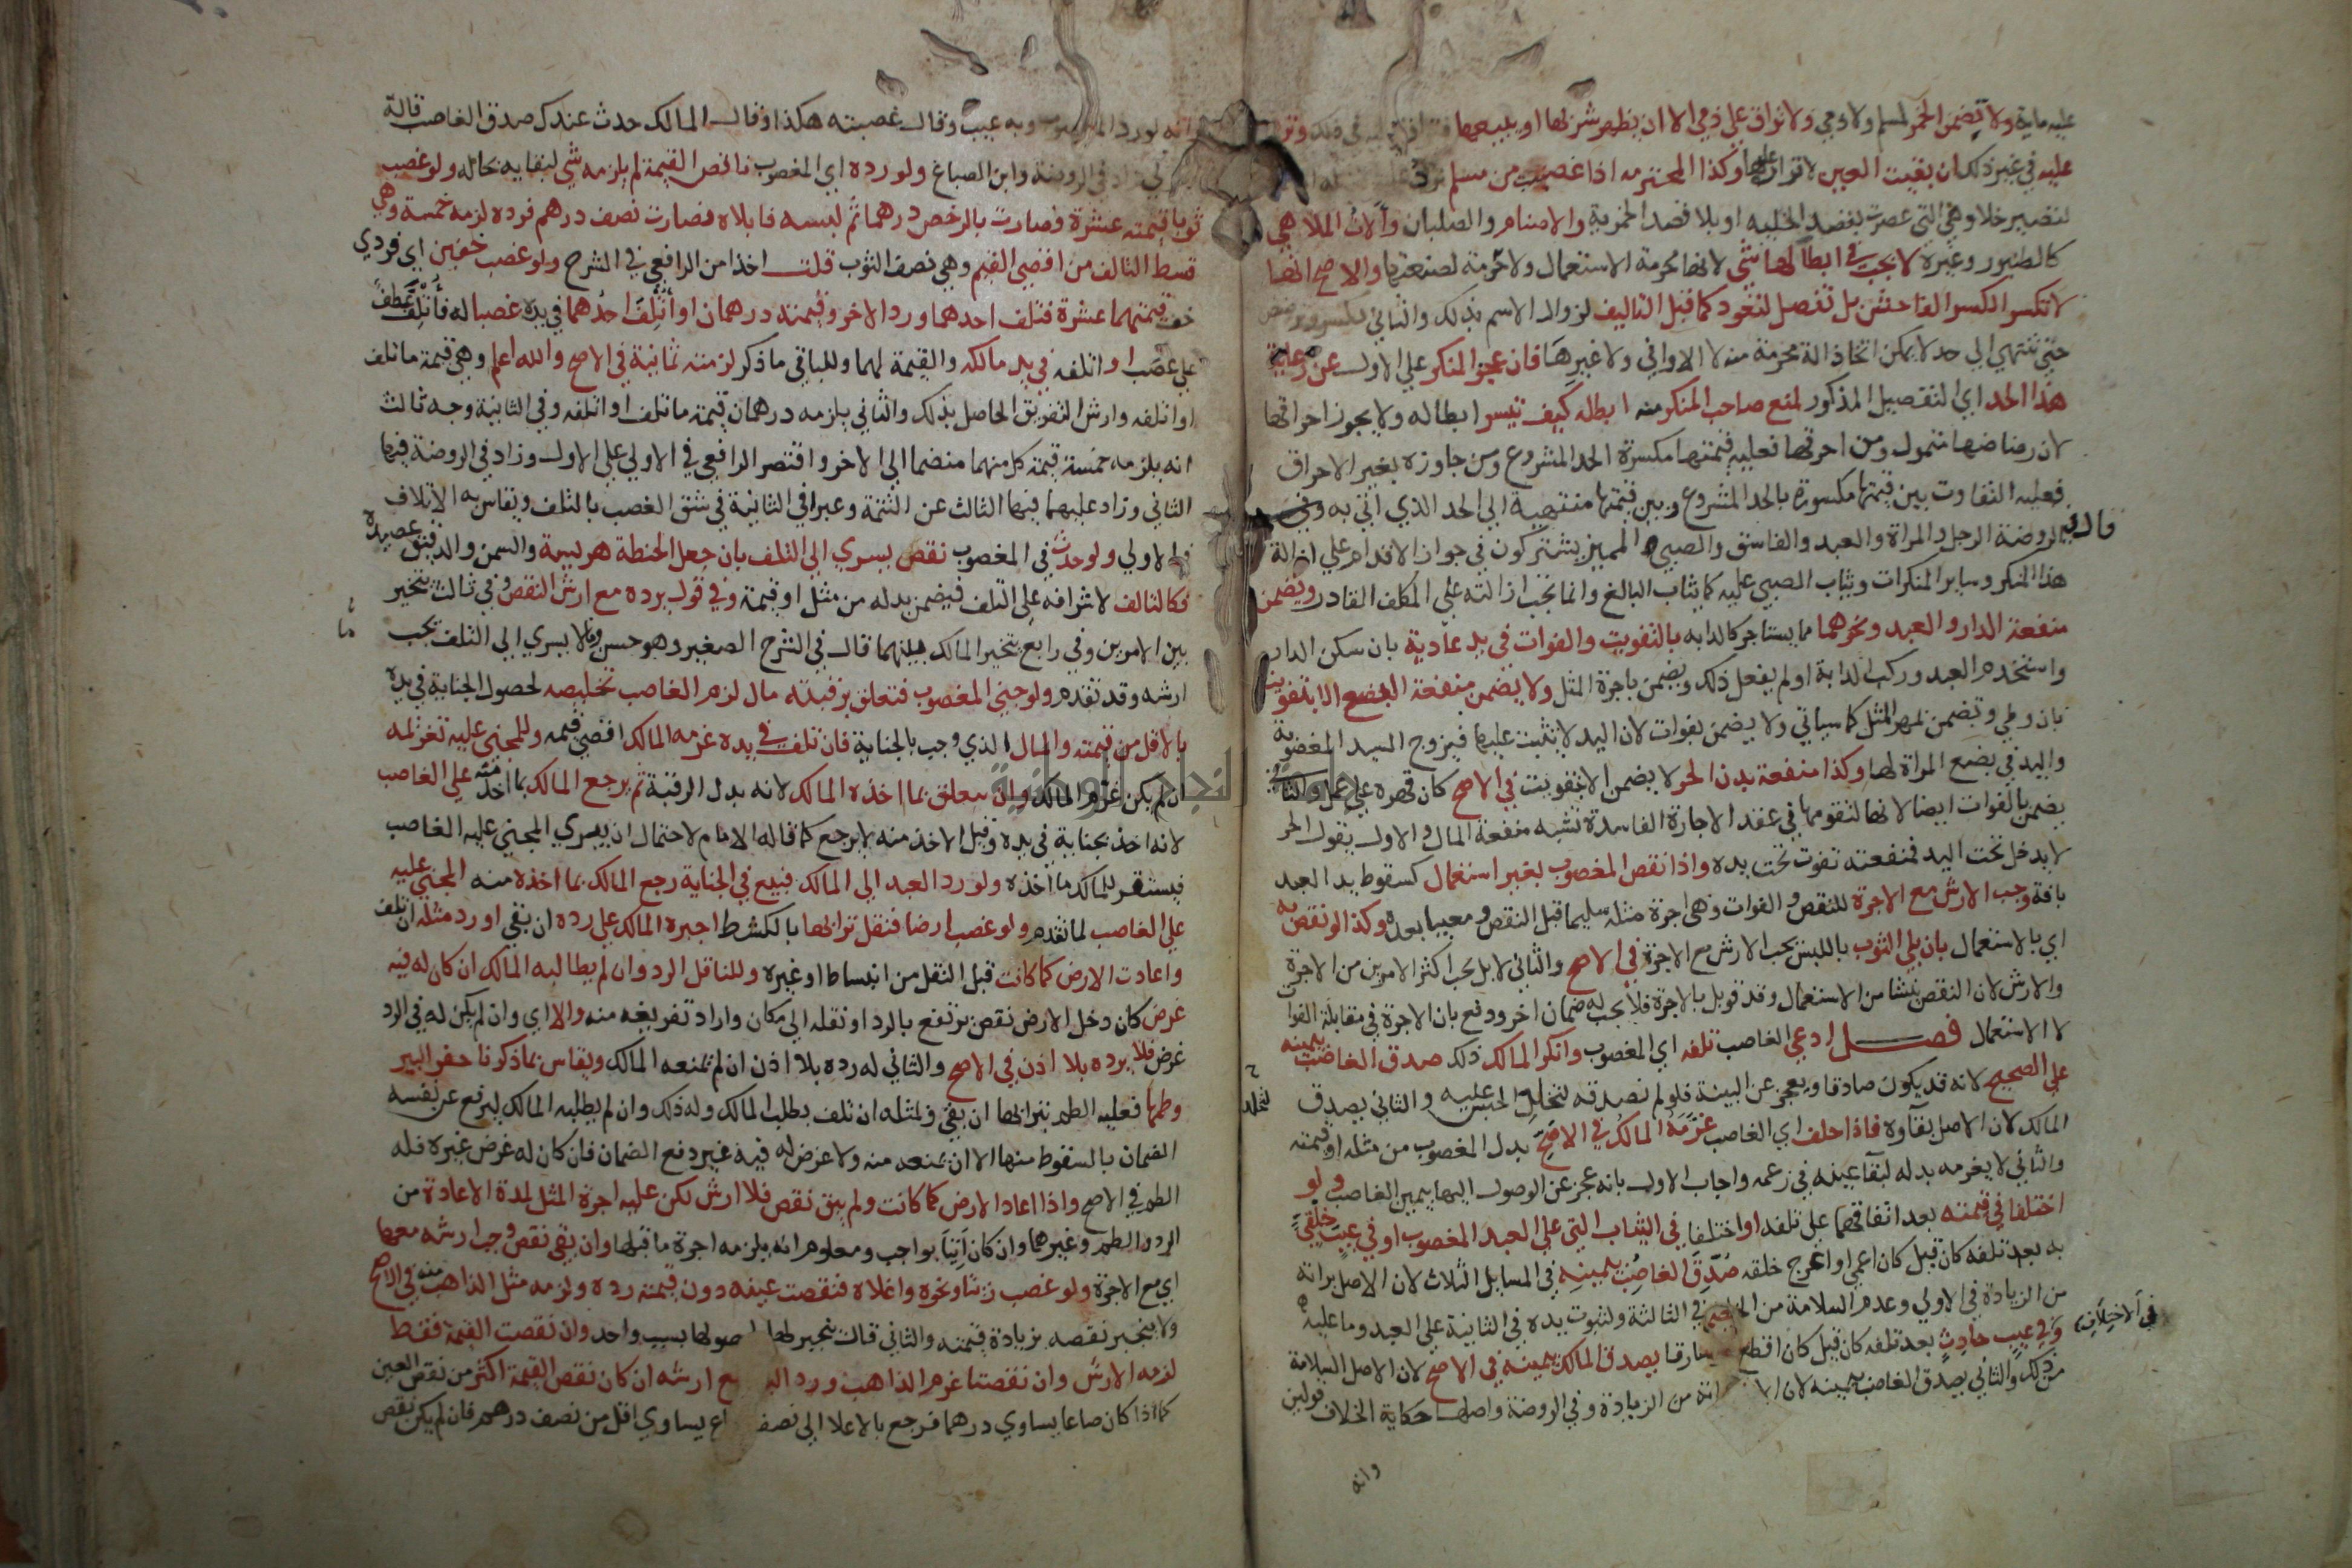 عليه ماية ولا تضمن الخمر لمسلم ولا ذمي ولا تراق علي ذمي الا ان يظهر شربها او بيعها
عليه في غير ذلك ان بقيت العين لاقراره عليها وكذا المحترمه اذا غصبت من مسلم ترد
لتصير خلا وهي التي عصرت بقصد الخليه او بلا قصد الخمرية والاصنام والصلبان وآلات الملاهي
كالطنبور وغيره لا يجب في ابطالها شي لانها محرمة الاستعمال ولا حرمة لصنعتها والاصح انها
لا تكسر الكسر الفاحش بل تفصل لتعود كما قبل التاليف لزوال الاسم بذلك والثاني تكسر وترضض
حتي تنتهي الي حد لا يمكن اتخاذ الة محرمة منه لا الاولي ولا غيرها فان عجز المنكر علي الاول عن رعاية
هذا الحد اي التفصيل المذكور لمنع صاحب المنكر منه ابطله كيف تيسر ابطاله ولا يجوز احراقها
لان رضاضها متمول ومن احرقها فعليه قيمتها مكسرة الحد المشروع ومن جاوزه بغير الاحراق
فعليه التفاوت بين قيمتها مكسورة بالحد المشروع وبين قيمتها منتهية الي الحد الذي اتي به
قال في الروضة الرجل والمراة والعبد والفاسق والصبي المميز يشتركون في جواز الاقدام علي ازالة
هذا المنكر وساير المنكرات ويثاب الصبي عليه كما يثاب البالغ وانما تجب ازالته علي المكلف القادر ويضمن
منفعة الدار والعبد ونحوهما مما يستاجر كالدابه بالتفويت والفوات في يد عادية بان سكن الدار
واستخدم العبد وركب الدابة او لم يفعل ذلك ويضمن باجرة المثل ولا يضمن منفعة البضع الا بتفويت
بان وطي وتضمن بمهر المثل كما سياتي ولا يضمن بفوات لان اليد لا تثبت عليها فيزوج السيد المغصوبة
واليد في بضع المراة لها وكذا منفعة بدن الحر لا يضمن الا بتفويت في الاصح كان قهره علي عمل والثاني
يضمن بالفوات ايضا لانها لتقومها في عقد الاجارة الفاسدة تشبه منفعة المال والاول يقول الحر
لا يدخل تحت اليد فمنفعته تفوت تحت يده واذا نقص المغصوب بغير استعمال كسقوط يد العبد
بافة وجب الارش مع الاجرة للنقص والفوات وهي اجرة مثله سليما قبل النقص ومعيبا بعده وكذا لو نقص به
اي بالاستعمال بان بلي الثوب باللبس يجب الارش مع الاجرة في الاصح والثاني لا بل يجب اكثر الامرين من الاجرة
والارش لان النقص نشا من الاستعمال وقد قوبل بالاجرة فلا يجب له ضمان اخر ودفع بان الاجرة في مقابلة الفوات
لا الاستعمال فصل ادعي الغاصب تلفه اي المغصوب وانكر المالك ذلك صدق الغاصب بيمينه
علي الصحيح لانه قد يكون صادقا ويعجز عن البينة فلو لم نصدقه لتخلد الحبس عليه والثاني يصدق
المالك لان الاصل بقاؤه فاذا حلف اي الغاصب غرمه المالك في الاصح بدل المغصوب من مثله او قيمته
والثاني لا يغرمه بدله لبقا عينه في زعمه واجاب الاول بانه عجز عن الوصول اليها بيمين الغاصب ولو
اختلفا في قيمته بعد اتفاقهما علي تلفه او اختلفا في الثياب التي علي العبد المغصوب او في عيب خلقي
به بعد تلفه كان قيل كان اعمي او اعرج خلقه صدق الغاصب بيمينه في المسايل الثلاث لان الاصل براته
من الزيادة في الاولي وعدم السلامة من الخلقي في الثالثة ولثبوت يده في الثانية علي العبد وما عليه
في الاختلاف
وفي عيب حادث بعد تلفه كان قيل كان اقطع سارقا يصدق المالك بيمينه في الاصح لان الاصل السلامة
من ذلك والثاني يصدق الغاصب بيمينه لان الا من الزيادة وفي الروضة واصلها حكاية الخلاف قولين
وانه
انه لو رد المغصوب وبه عيب وقال غصبته هكذا وقال المالك حدث عندك صدق الغاصب قاله
زاد في الروضة وابن الصباغ ولو رده اي المغصوب ناقص القيمة لم يلزمه شي لبقايه بحاله ولو غصب
ثوبا قيمته عشرة فصارت بالرخص درهما ثم لبسه فابلاه فصارت نصف درهم فرده لزمه خمسة وهي
قسط التالف من اقصي القيم وهي نصف الثوب قلت اخذا من الرافعي في الشرح ولو غصب خفين اي فردي
خف قيمتهما عشرة فتلف احدهما ورد الاخر وقيمته درهمان او أتلف احدهما في يده غصبا له فأتلف عطف
علي غصب او اتلفه في يد مالكه والقيمة لهما وللباقي ما ذكر لزمته ثمانية في الاصح والله اعلم وهي قيمة ما تلف
او اتلفه وارش التفريق الحاصل بذلك والثاني يلزمه درهمان قيمة ما تلف او اتلفه وفي الثانية وجه ثالث
انه يلزمه خمسة قيمة كل منهما منضما الي الاخر واقتصر الرافعي في الاولي علي الاول وزاد في الروضة فيها
الثاني وزاد عليهما فيها الثالث عن التتمة وعبرا في الثانية في شق الغصب بالتلف ويقاس به الاتلاف
في الاولي ولو حدث في المغصوب نقص يسري الي التلف بان جعل الحنطة هريسة والسمن والدقيق عصيدة
فكالتالف لاشرافه علي التلف فيضمن بدله من مثل او قيمة وفي قول يرده مع ارش النقص وفي ثالث يتخير
بين الامرين وفي رابع يتخير المالك بينهما قال في الشرح الصغير وهو حسن وما لا يسري الي التلف يجب
ارشه وقد تقدم ولو جني المغصوب فتعلق برقبته مال لزم الغاصب تخليصه لحصول الجناية في يده
بالاقل من قيمته والمال الذي وجب بالجناية فان تلف في يده غرمه المالك اقصي قيمه وللمجني عليه تغريمه
ان لم يكن غرم المالك وان يتعلق بما اخذه المالك لانه بدل الرقبة ثم يرجع المالك بما اخذ منه علي الغاصب
لانه اخذ بجناية في يده وقبل الاخذ منه لا يرجع كما قاله الامام لاحتمال ان يبري المجني عليه الغاصب
فيستقر للمالك ما اخذه ولو رد العبد الي المالك فبيع في الجناية رجع المالك بما اخذه منه المجني عليه
علي الغاصب لما تقدم ولو غصب ارضا فنقل ترابها بالكشط اجبره المالك علي رده ان بقي او رد مثله ان تلف
واعادت الارض كما كانت قبل النقل من انبساط او غيره وللناقل الرد وان لم يطالبه المالك ان كان له فيه
غرض كان دخل الارض نقص يرتفع بالرد او نقله الي مكان واراد تفريغه منه والا اي وان لم يكن له في الرد
غرض فلا يرده بلا اذن في الاصح والثاني له رده بلا اذن ان لم يمنعه المالك ويقاس بما ذكرنا حفر البير
وطمها فعليه الطم بترابها ان بقي وبمثله ان تلف بطلب المالك وله ذلك وان لم يطلبه المالك ليدفع عن نفسه
الضمان بالسقوط منها الا ان يمنعه منه ولا غرض له فيه غير دفع الضمان فان كان له غرض غيره فله
الطم في الاصح واذا اعاد الارض كما كانت ولم يبق نقص فلا ارش لكن عليه اجرة المثل لمدة الاعادة من
الرد والطم وغيرهما وان كان آتيا بواجب ومعلوم انه يلزمه اجرة ما قبلها وان بقي نقص وجب ارشه معها
اي مع الاجرة ولو غصب زيتا ونحوه واغلاه فنقصت عينه دون قيمته رده ولزمه مثل الذاهب منه في الاصح
ولا ينجبر نقصه بزيادة قيمته والثاني قال ينجبر لها لحصولها بسبب واحد وان نقصت القيمة فقط
لزمه الارش وان نقصتا غرم الذاهب ورد الباقي مع ارشه ان كان نقص القيمة اكثر من نقص العين
كما اذا كان صاعا يساوي درهما فرجع بالاغلا الي نصف صاع يساوي اقل من نصف درهم فان لم يكن نقص